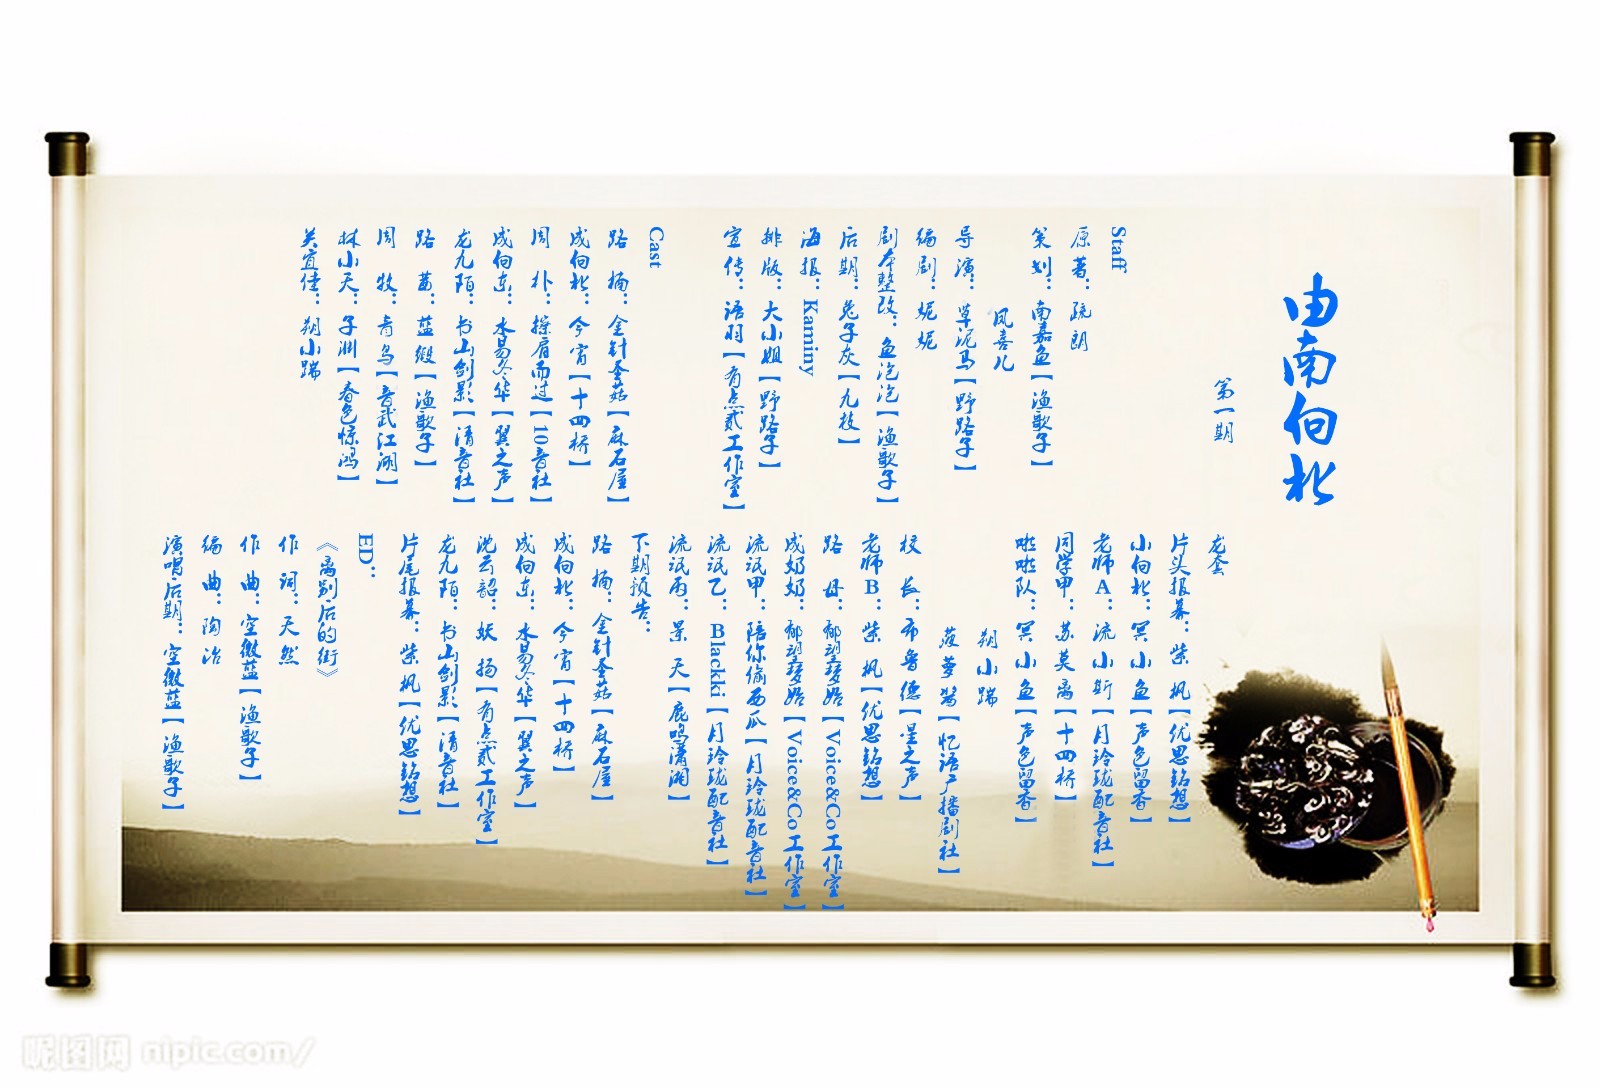 由南向北
第一期
Staff
原著：疏朗
策划：南嘉鱼【渔歌子】
凤喜儿
导演：草泥马【野路子】
编剧：妮妮
剧本整改：鱼泡泡【渔歌子】
后期：兔子灰【九枝】
海报：Kaminy
排版：大小姐【野路子】
宣传：语羽【有点贰工作室】
Cast
路 楠：金针圣菇【麻石屋】
成向北：今宵【十四桥】
周 朴：擦肩而过【10音社】
成向东：水易冬华【翼之声】
龙九陌：书山剑影【清音社】
路 茜：蓝缎【渔歌子】
周 牧：青鸟【音武江湖】
林小天：子渊【春色惊鸿】
关宜佳：朔小踹
龙套
片头报幕：柴 枫【优思铭想】
小向北：冥小鱼【声色留香】
老师A：流小斯【月玲珑配音社】
同学甲：苏莫离【十四桥】
啦啦队：冥小鱼【声色留香】
朔小踹
菠萝酱【忆语广播剧社】
校 长：布鲁德【星之声】
老师B：柴 枫【优思铭想】
路 母：郁望梦始【Voice&Co工作室】
成奶奶：郁望梦始【Voice&Co工作室】
流氓甲：陪你偷西瓜【月玲珑配音社】
流氓乙：Blackki【月玲珑配音社】
流氓丙：景 天【鹿鸣潇湘】
下期预告：
路 楠：金针圣菇【麻石屋】
成向北：今宵【十四桥】
成向东：水易冬华【翼之声】
沈云韶：妖 扬【有点贰工作室】
龙九陌：书山剑影【清音社】
片尾报幕：柴 枫【优思铭想】
ED：
《离别后的街》
作 词：天然
作 曲：空微蓝【渔歌子】
编 曲：陶冶
演唱/后期：空微蓝【渔歌子】
昵图网 nipic.com/